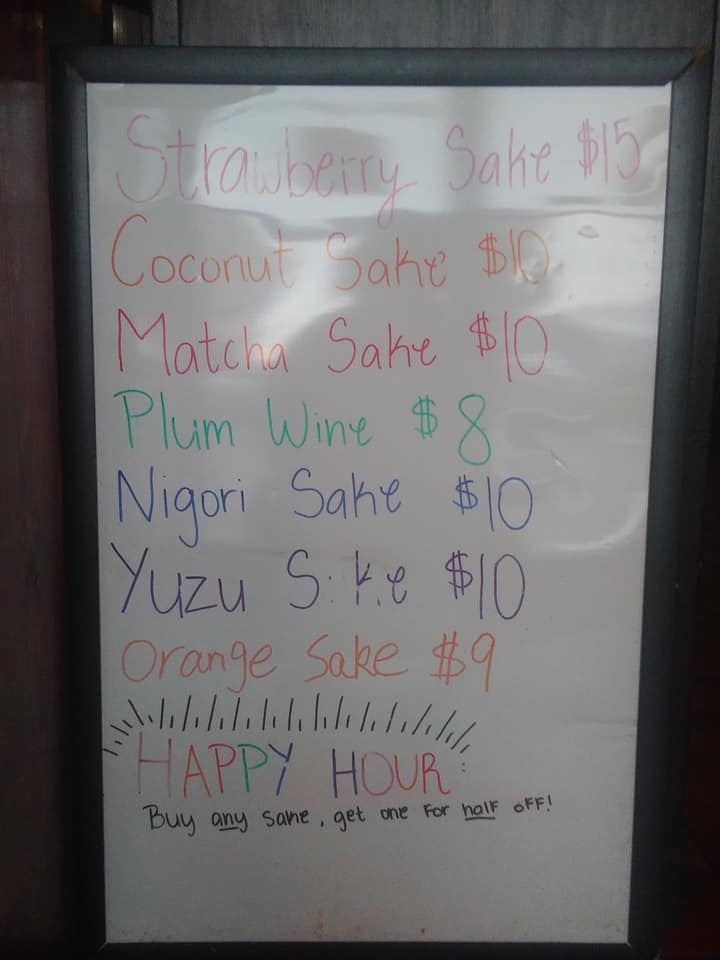 Strawberry Sake $15
Coconut Sake $10
Matcha Sake $10
Plum Wine $8
Nigori Sake $10
Yuzu $10
Orange Sake $9
HAPPY HOUR:
Buy any sake, get one for half off!